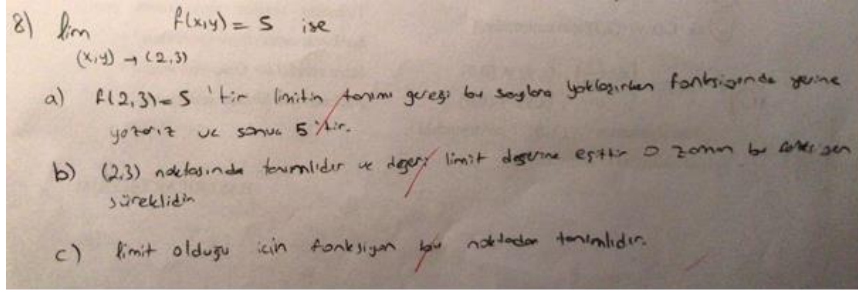 8) lim f(x,y) = 5 ise
(x,y) → (2,3)
a) f(2,3)=5 'tir limitin tanımı gereği bu sayılara yaklaşırken fonksiyonda yerine
yazarız ve sonuç 5'tir.
b) (2,3) noktasında tanımlıdır ve değeri limit değerine eşittir o zaman bu
süreklidir
c) limit olduğu için fonksiyon bu noktadan tanımlıdır.